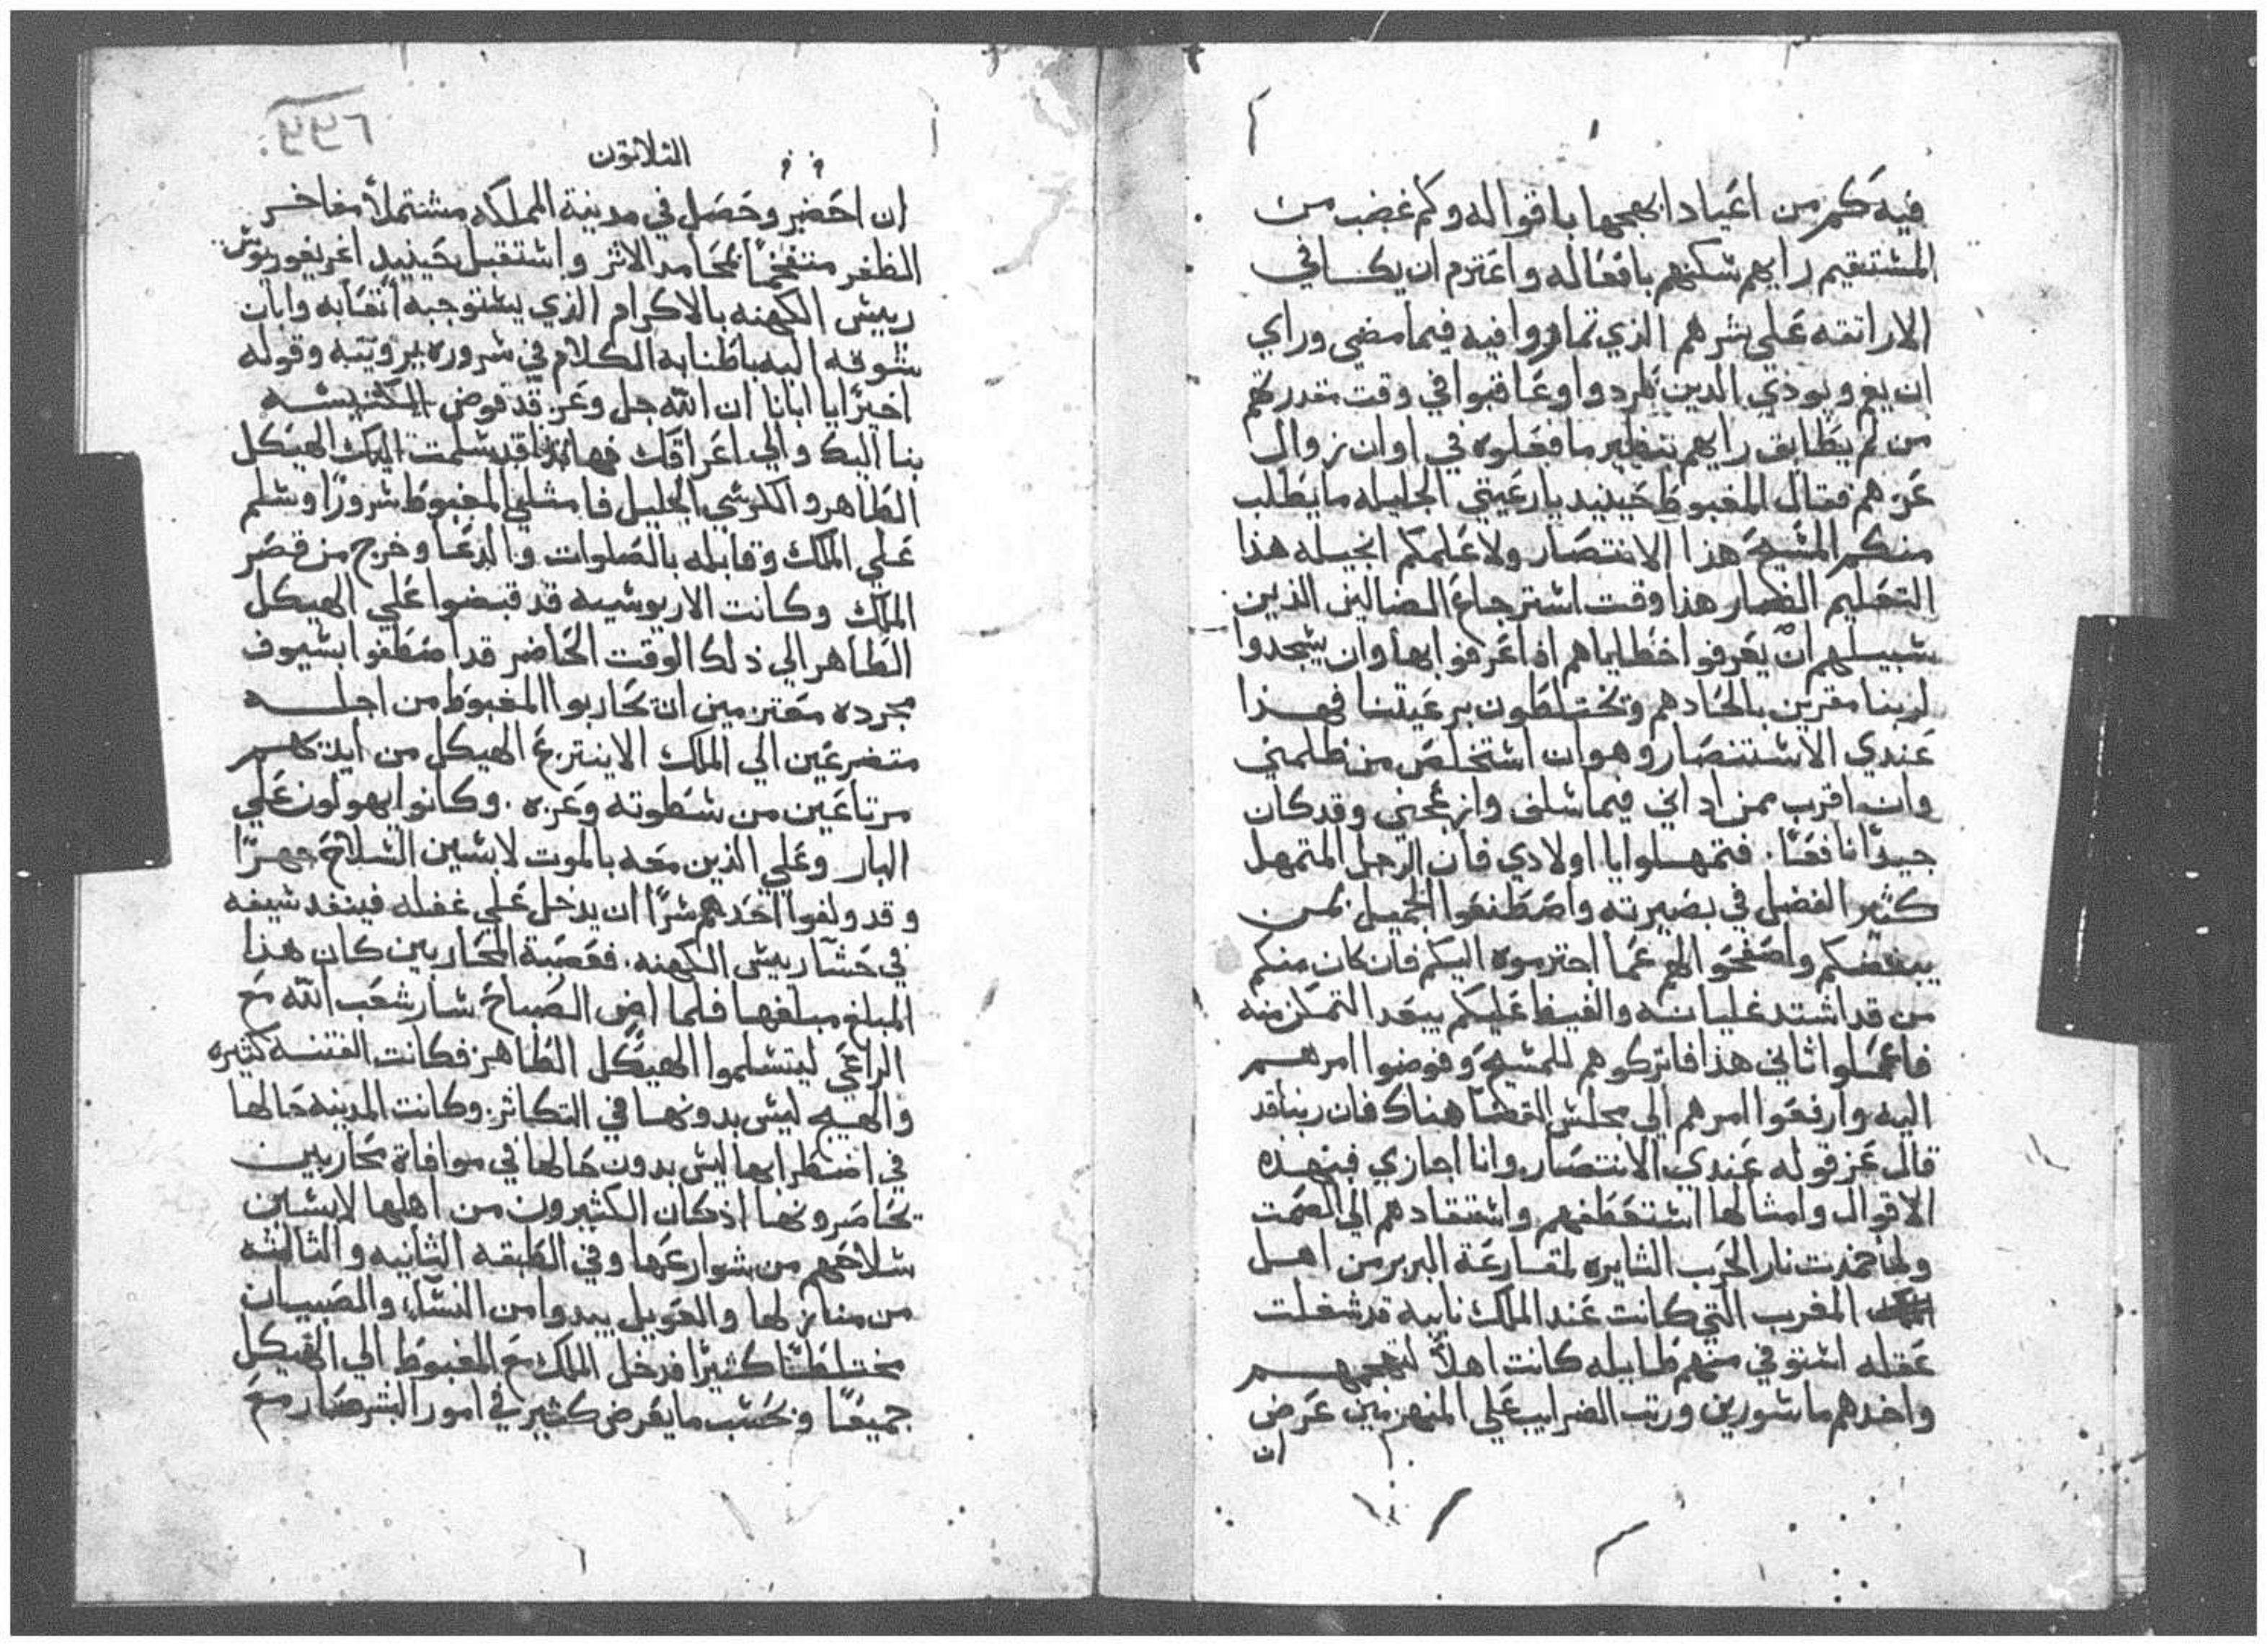 فيه كم من اعياد ابهجها باقواله وكم غضب من
المستقيم رايهم سكنهم بافعاله واعتزم ان يكافي
الاراتقه علي شرهم الذي تمادوا فيه فيما مضي وراي
ان يغم ويوذي الذين طردوا وعاقبوا في وقت مقدرتهم
من لم يطابق رايهم بنظير ما فعلوه في اوان زوال
عزهم فقال المغبوط حينيد يا رعيتي الجليله ما يطلب
منكم المسيح هذا الانتصار ولا علمكم انجيله هذا
التعليم الضار هذا وقت استرجاع الضالين الذين
سبيلهم ان يعرفوا خطاياهم اذا اعرفوا بها وان يسجدوا
لربنا مقرين بالحادهم وتختلطون برعيتنا فهذا
عندي الاستنصار وهو ان استخلص من ظلمني
وان اقرب ممن اذاني فيما سلف وازعجني وقد كان
جيدا نافعا. فتمهلوا يا اولادي فان الرجل المتمهل
كثير الفضل في بصيرته واصطنعوا الجميل بمن
يبغضكم واصفحوا لهم عما اجترموه اليكم فان كان منكم
من قد اشتد غليانه والغيظ عليكم يبعد التمكن منه
فاعملوا ثاني هذا فاتركوهم للمسيح وفوضوا امرهم
اليه وارفعوا امرهم الي مجلس القضا هناك فان ربنا قد
قال عز قوله عندي الانتصار وانا اجازي فبهذه
الاقوال وامثالها استعطفهم واستقادهم الي الصمت
ولما خمدت نار الحرب الثايره لمقارعة البربر من اهل
المغرب التي كانت عند الملك نابيه قد شغلت
عقله استوفي منهم طايله كانت اهلا لتهجمهم
واخذهم ماسورين ورتب الضرايب علي المنهزمين عرض
ان
الثلاثون
ان احضر وحصل في مدينة المملكه مشتملا مفاخر
الظفر منتفخا بمحامد الاثر واستقبل حينيد اغريغوريوس
رييس الكهنه بالاكرام الذي يستوجبه اتعابه وابان
شوقه اليه باطنابه الكلام في سروره برويته وقوله
اخيرا يا ابانا ان الله جل وعز قد فوض الكنيسه
بنا اليك والي اعراقك فها انا قد سلمت اليك الهيكل
الطاهر والكرسي الجليل فامتلي المغبوط سرورا وسلم
علي الملك وقابله بالصلوات والدعا وخرج من قصر
الملك وكانت الاريوسيه قد قبضوا علي الهيكل
الطاهر الي ذلك الوقت الحاضر قد اصطفوا بسيوف
مجرده معتزمين ان يحاربوا المغبوط من اجله
متضرعين الي الملك الا ينتزع الهيكل من ايديهم
مرتاعين من سطوته وعزه. وكانوا يهولون علي
البار وعلي الذين معه بالموت لابسين السلاح جهرا
وقد ولفوا احدهم سرا ان يدخل علي غفله فينفد سيفه
في حشا رييس الكهنه. فعصبة المحاربين كان هذا
المبلغ مبلغها فلما اضى الصباح سار شعب الله مع
الراعي ليتسلموا الهيكل الطاهر فكانت الفتنه كثيره
والهيج ليس بدونها في التكاثر. وكانت المدينه حالها
في اضطرابها ليس بدون حالها في موافاة محاربين
يحاصرونها اذ كان الكثيرون من اهلها لابسين
سلاحهم من شوارعها وفي الطبقه الثانيه والثالثه
من منازلها والعويل يبدوا من النساء والصبيان
مختلطا كثيرا فدخل الملك مع المغبوط الي الهيكل
جميعا وبحسب ما يعرض كثير في امور البشر صار مع